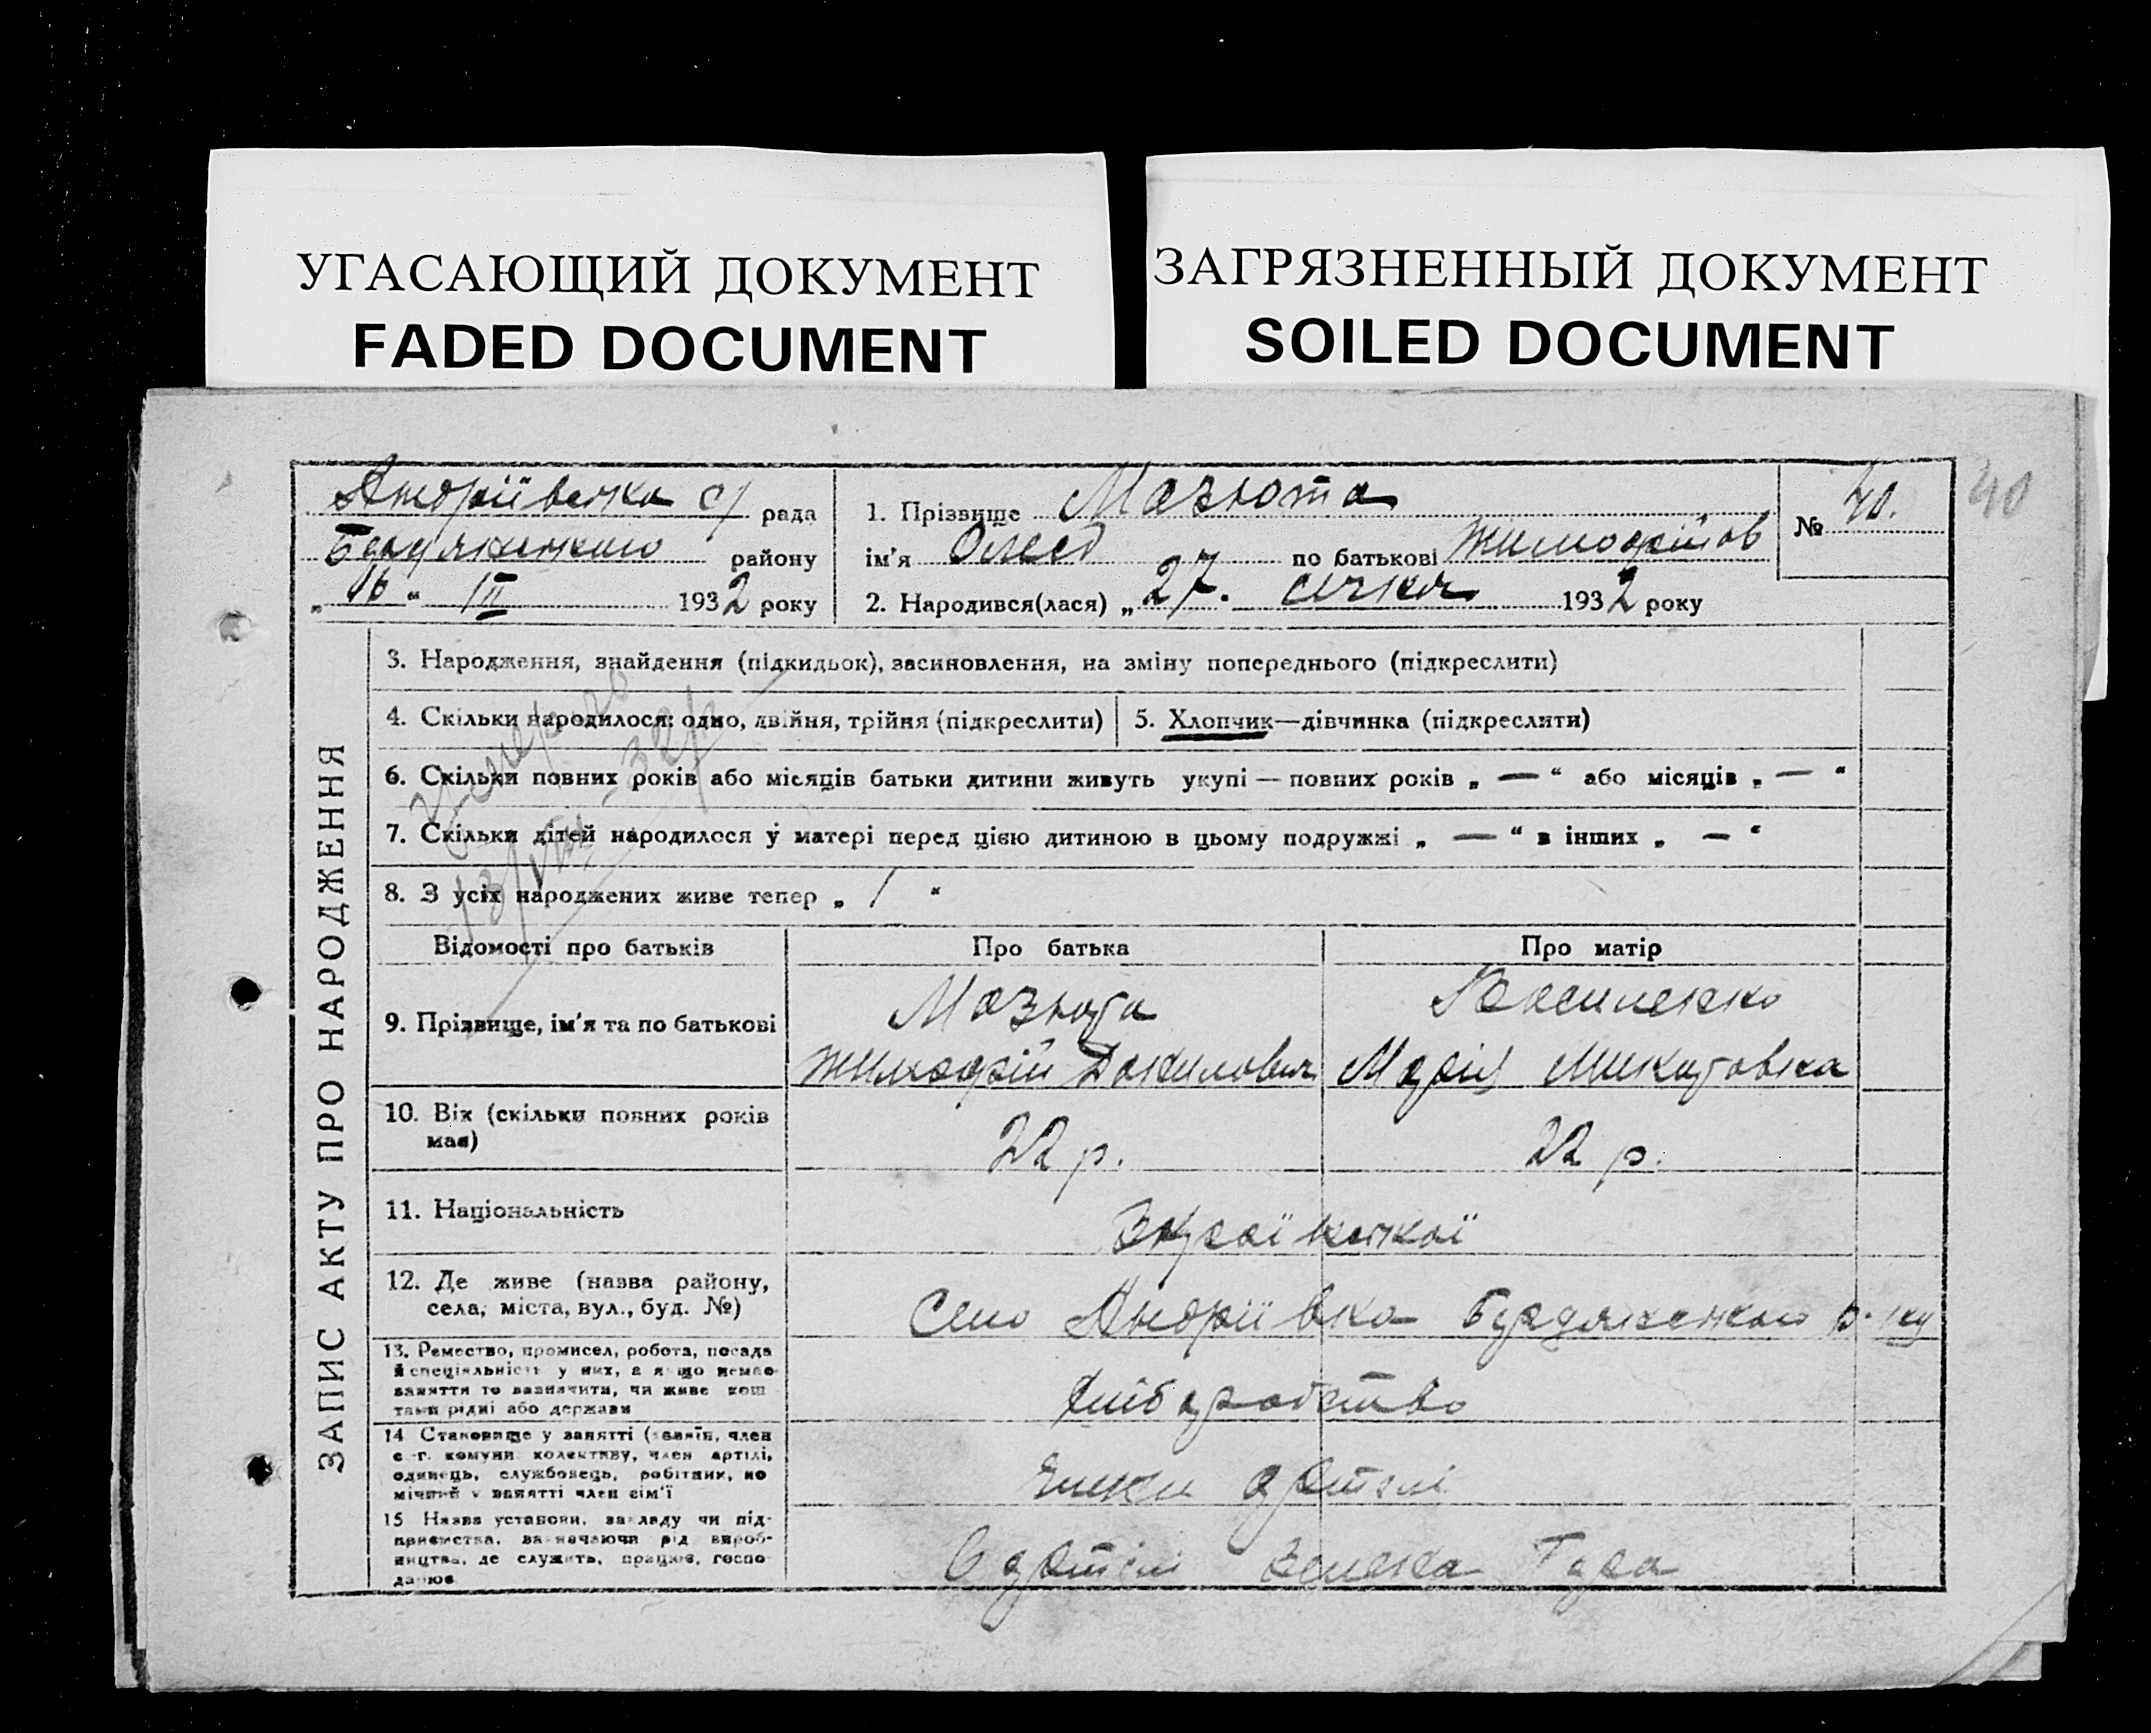 УГАСАЮЩИЙ ДОКУМЕНТ
FADED DOCUMENT
ЗАГРЯЗНЕННЫЙ ДОКУМЕНТ
SOILED DOCUMENT
Андріівська с/ рада
району
„ 16 “ III 1932 року
1. Прізвище Мазюта
ім'я Олєсд по батькові Тимофійов
2. Народився(лася) „ 27. січня 1932 року
№ 40.
40
ЗАПИС АКТУ ПРО НАРОДЖЕННЯ
3. Народження, знайдення (підкидьок), засиновлення, на зміну попереднього (підкреслити)
4. Скільки народилося: одно, двійня, трійня (підкреслити)
5. Хлопчик—дівчинка (підкреслити)
6. Скільки повних років або місяців батьки дитини живуть укупі — повних років „ — “ або місяців „ — “
7. Скільки дітей народилося у матері перед цією дитиною в цьому подружжі „ — “ в інших „ — “
8. З усіх народжених живе тепер „ 1 “
13/VIII - 32 р
Відомості про батьків
Про батька
Про матір
9. Прізвище, ім'я та по батькові
Мазюта
Тимофій Данилович
Василенко
Марія Микитовна
10. Вік (скільки повних років
має)
22 р.
22 р.
11. Національність
Вкраїнської
12. Де живе (назва району,
села, міста, вул., буд. №)
Село Андріївка Бердянського р-ну
13. Ремество, промисел, робота, посада
й спеціяльність у них, а якщо немає
заняття то зазначити, чи живе кош
тами рідні або держави
Хліборобство
14 Становище у занятті (хазяїн, член
с-г. комуни колективу, член артілі,
одинець, службовець, робітник, по
мічний у занятті член сім'ї
Члени артелі
15 Назва установи, закладу чи під-
приємства, зазначаючи рід вироб-
ництва, де служить, працює, госпо-
дарює
В артелі